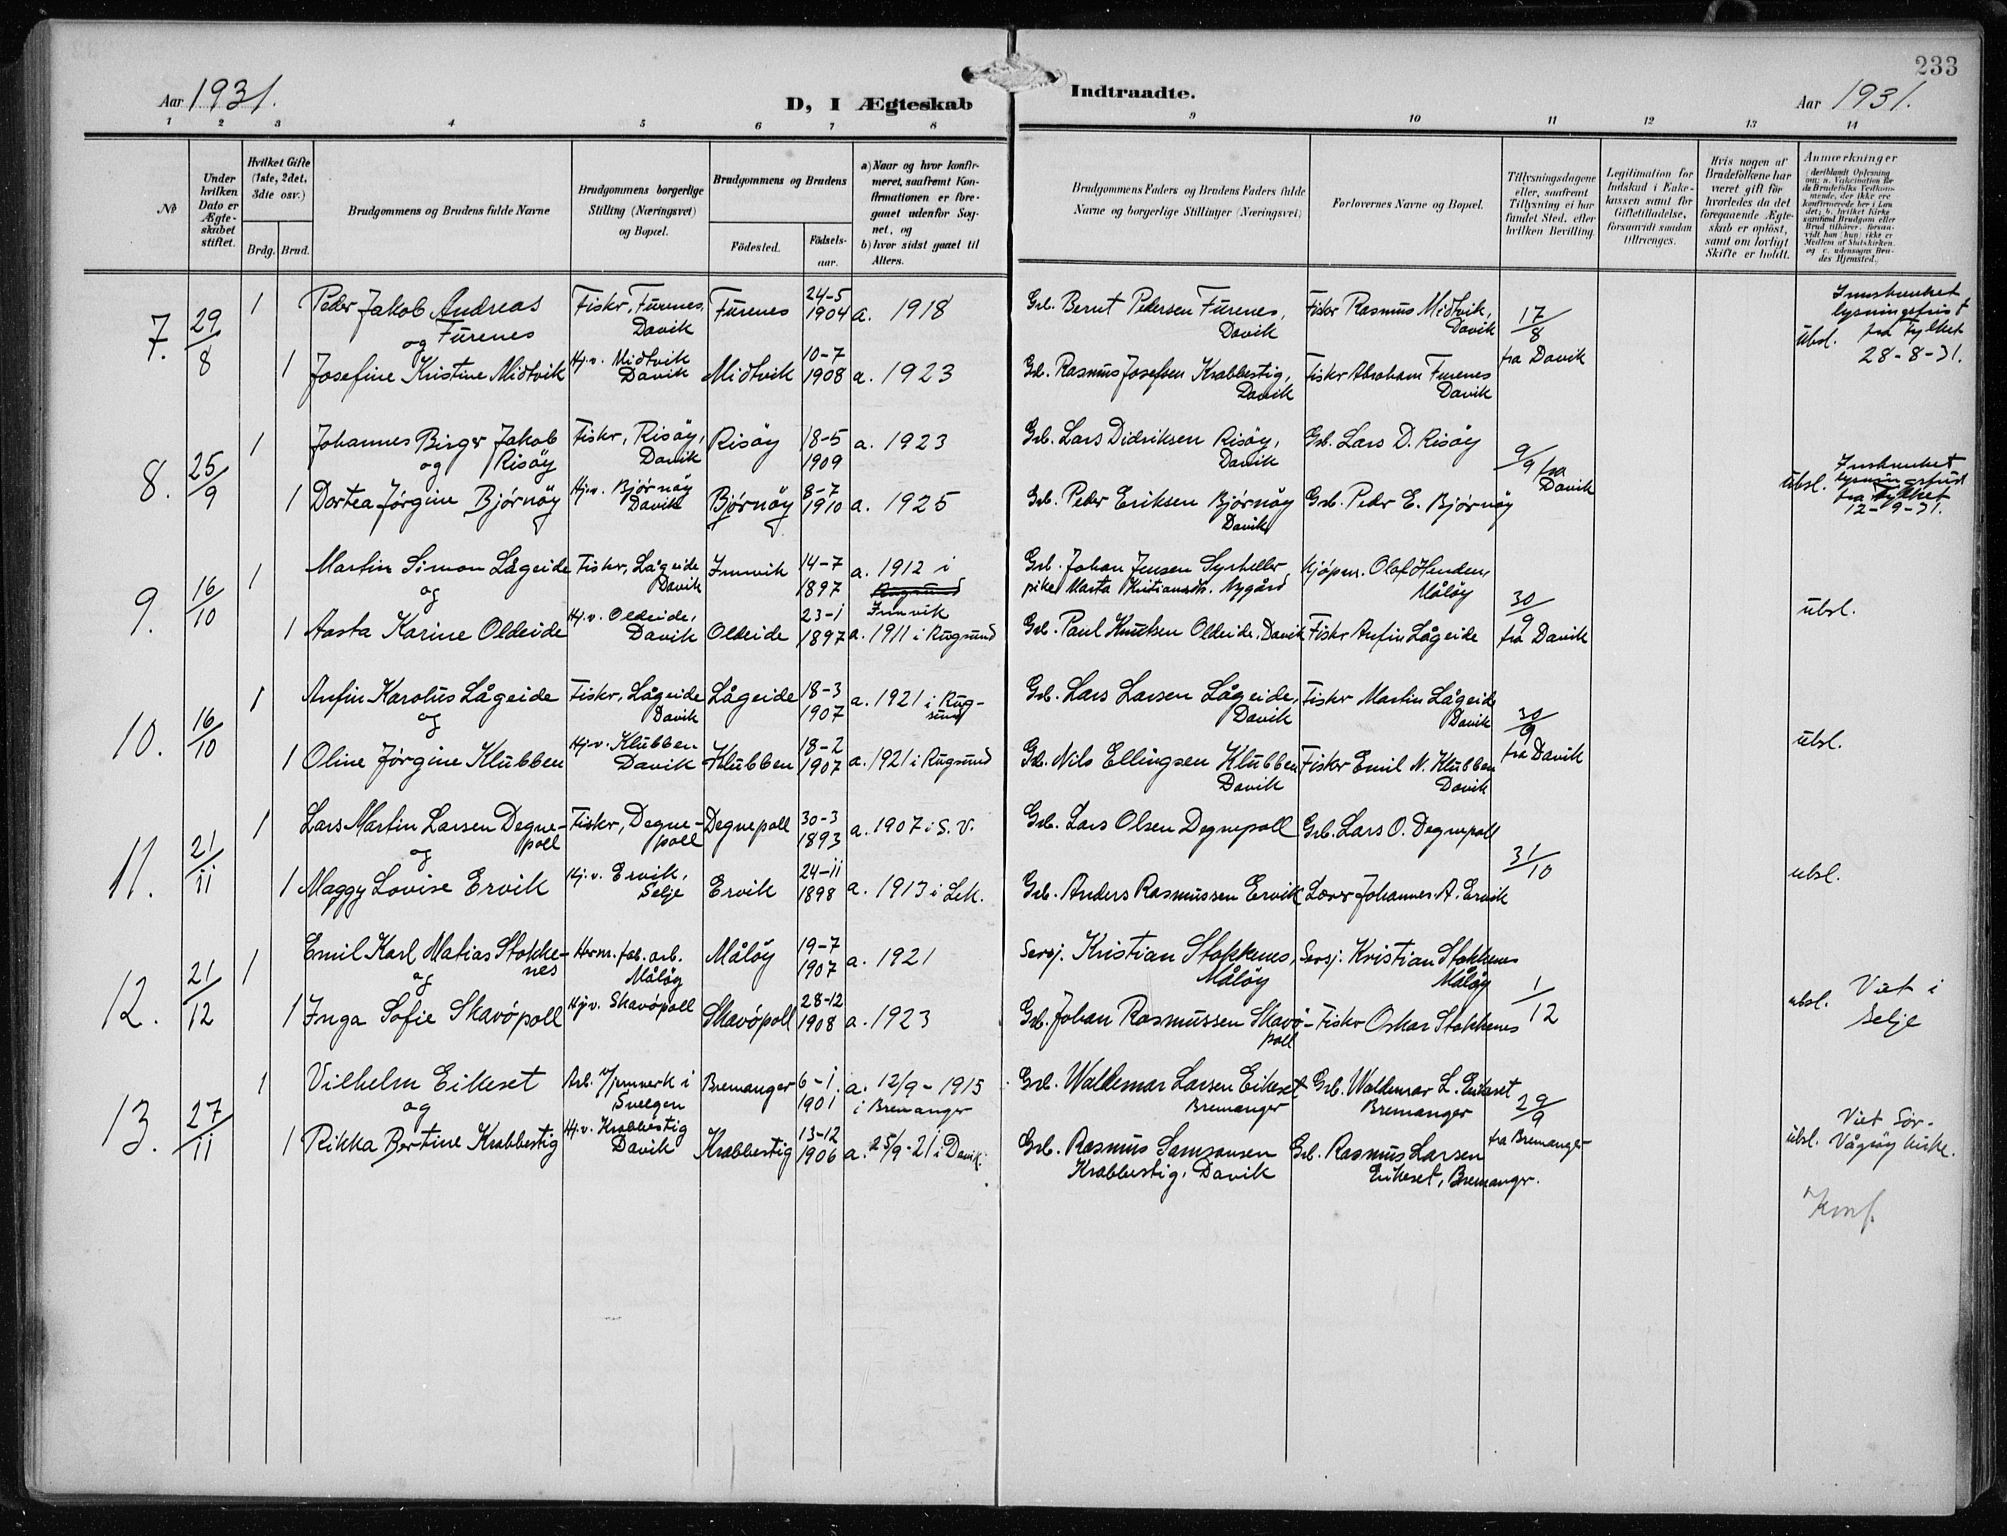 233
Aar 1931.
D, I Ægteskab Indtraadte.
Aar 1931.
1 2 3 4 5 6 7 8 9 10 11 12 13 14
No
Under hvilken Dato er Ægteskabet stiftet.
Hvilket Gifte (1ste, 2det, 3die osv.)
Brdg. Brud.
Brudgommens og Brudens fulde Navne
Brudgommens borgerlige Stilling (Næringsvei) og Bopæl.
Brudgommens og Brudens
Födested. Födselsaar.
a) Naar og hvor konfirmeret, saafremt Konfirmationen er foregaaet udenfor Sognet, og
b) hvor sidst gaaet til Alters.
Brudgommens Faders og Brudens Faders fulde Navne og borgerlige Stillinger (Næringsvei)
Forlovernes Navne og Bopæl.
Tillysningsdagene eller, saafremt Tillysning ei har fundet Sted, efter hvilken Bevilling.
Legitimation for Indskud i Enkekassen samt for Giftetilladelse, forsaavidt saadan tiltrænges.
Hvis nogen af Brudefolkene har været gift før hvorledes da det foregaaende Ægteskab er oplöst, samt om lovligt Skifte er holdt.
Anmærkninger
7. 29/8 1 Peder Jakob Andreas Furenes Fisker, Furenes, Davik Furenes 24-5 1904 a. 1918 Grb. Bernt Pedersen Furenes, Davik Fisker Rasmus Midtvik, Davik 17/8 fra Davik ubsl. Innskrenket lysningsfrist fra Fylket 28-8-31.
og
1 Josefine Kristine Midtvik Hj.v. Midtvik Davik Midtvik 10-7 1908 a. 1923 Grb. Rasmus Josefsen Krabbestig, Davik Fisker Abraham Furenes Davik
8. 25/9 1 Johannes Birger Jakob Risöy Fisker, Risöy, Davik Risöy 18-5 1909 a. 1923 Grb. Lars Didriksen Risöy, Davik Grb. Lars D. Risöy 9/9 fra Davik ubsl. Innskrenket lysningsfrist fra Fylket 12-9-31.
og
1 Dortea Jørgine Bjørnöy Hj.v. Bjørnöy Davik Bjørnöy 8-7 1910 a. 1925 Grb. Peder Eriksen Bjørnöy Davik Grb. Peder E. Bjørnöy
9. 16/10 1 Martin Simon Lågeide Fisker, Lågeide Davik Innvik 14-7 1897 a. 1912 i Rugsund Innvik Grb. Johan Jensen pike Marta Kristiansdtr. Nygård Kjøpm. Olaf Henden, Måløy 30/9 fra Davik ubsl.
og
1 Aasta Karine Oldeide Hj.v. Oldeide, Davik Oldeide 23-1 1897 a. 1911 i Rugsund Grb. Paul Knutsen Oldeide, Davik Fisker Anfin Lågeide
10. 16/10 1 Anfin Karolus Lågeide Fisker, Lågeide Davik Lågeide 18-3 1907 a. 1921 i Rugsund Grb. Lars Larsen Lågeide, Davik Fisker Martin Lågeide Davik 30/9 fra Davik ubsl.
og
1 Oline Jørgine Klubben Hj.v. Klubben Davik Klubben 18-2 1907 a. 1921 i Rugsund Grb. Nils Ellingsen Klubben Davik Fisker Emil N. Klubben Davik
11. 21/11 1 Lars Martin Larsen Degnepoll Fisker, Degnepoll Degnepoll 30-3 1893 a. 1907 i S.V. Grb. Lars Olsen Degnepoll Grb. Lars O. Degnepoll 31/10 ubsl.
og
1 Maggy Lovise Ervik Hj.v. Ervik, Selje Ervik 24-11 1898 a. 1913 i Grb. Anders Rasmussen Ervik Lærer Johannes A. Ervik
12. 21/12 1 Emil Karl Matias Stokkenes Herm. fab. arb. Måløy Måløy 19-7 1907 a. 1921 Kristian Stokkenes, Måløy Kristian Stokkenes Måløy 1/12 ubsl. Viet i Selje
og
1 Inga Sofie Skavöpoll Hj.v. Skavöpoll Skavöpoll 28-12 1908 a. 1923 Grb. Johan Rasmussen Skavöpoll Fisker Oskar Stokkenes
13. 27/11 1 Vilhelm Eikeset Arb. v/jernverk i Svelgen Bremanger 6-1 1901 a. 12/9-1915 i Bremanger Grb. Waldemar Larsen Eikeset Bremanger Grb. Waldemar L. Eikeset Bremanger 29/9 fra Bremanger ubsl. Viet Sör-Vågsöy kirke.
og
1 Rikka Bertine Krabbestig Hj.v. Krabbestig Davik Krabbestig 13-12 1906 a. 25/9-21 i Davik. Grb. Rasmus Samsonsen Krabbestig, Davik Grb. Rasmus Larsen Eikeset, Bremanger.